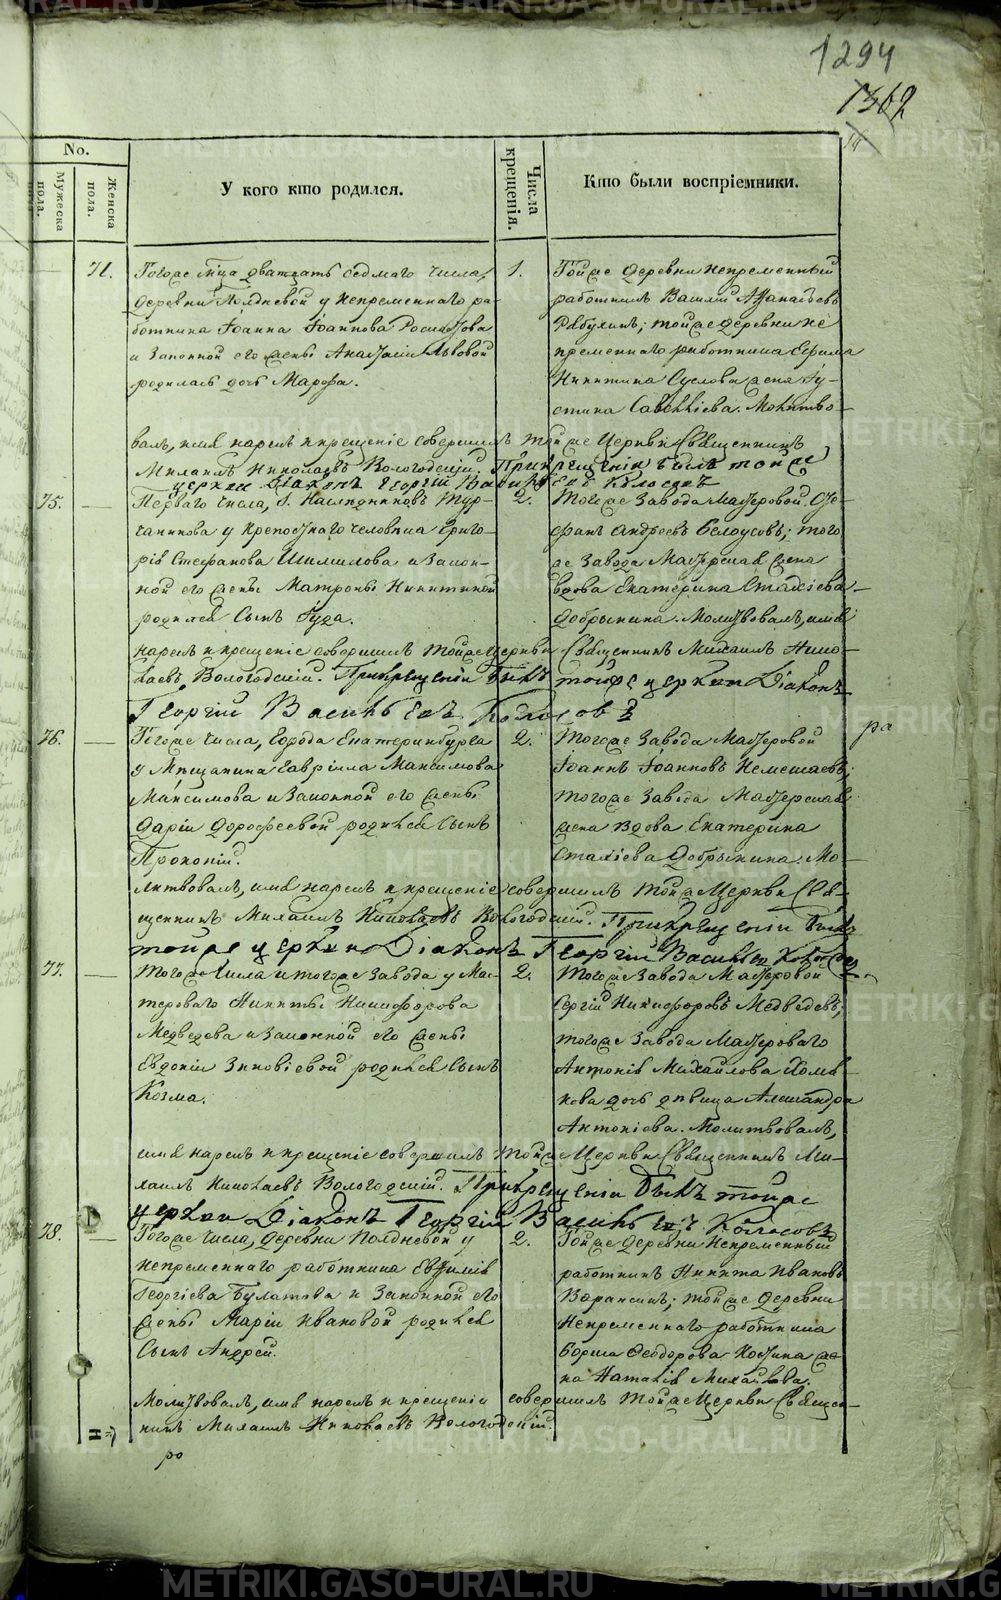 1294
1302
No.
Мужеска пола.
Женска пола.
У кого кто родился.
Числа крещенія.
Кто были воспріемники.
71.
Тогоже мца дватцать седмаго числа,
деревни Полдневой у непременнаго ра-
ботника Іоанна Іоаннова
и законной его жены Анастасіи Львовой
родилась дочь Марфа.
1.
Тойже деревни непременный
работникъ Василій Афанасьевъ
тойже деревни не
пременнаго работника Ефима
Никитина Суслова жена Іу-
стина Савельева. Молитво-
валъ, имя нарекъ и крещеніе совершилъ тойже Церкви Священникъ
Михаилъ Николаевъ Вологодскій. При крещеніи былъ тойже
церкви Діаконъ Георгій Васильевъ Колосовъ
75.
Перваго числа, Г. Наследниковъ Тур-
чанинова у крепостнаго человека Григо-
рія Стефанова Шилкова и закон-
ной его жены Матроны Никитиной
родился сынъ Іуда.
2.
Тогоже Завода Мастеровой Сте-
фанъ Андреевъ Белоусовъ; того
же Завода Мастерская жена
вдова Екатерина Стахіева
Добрынина. Молитвовалъ, имя
нарекъ и крещеніе совершилъ тойже Церкви Священникъ Михаилъ Нико-
лаевъ Вологодскій. При крещеніи былъ тойже церкви Діаконъ
Георгій Васильевъ Колосовъ
ра
76.
Тогоже числа, города Екатеринбурга
у Мещанина Гавріила Максимова
Максимова и законной его жены
Даріи Дорофеевой родился сынъ
Прокопій.
2.
Тогоже Завода Мастеровой
Іоаннъ Іоанновъ Немешаевъ;
тогоже Завода Мастерская
жена вдова Екатерина
Стахіева Добрынина. Мо-
литвовалъ, имя нарекъ и крещеніе совершилъ тойже Церкви Свя-
щенникъ Михаилъ Николаевъ Вологодскій. При крещеніи былъ
тойже церкви Діаконъ Георгій Васильевъ Колосовъ
77.
Тогоже числа и тогоже Завода у Мас-
тероваго Никиты Никифорова
Медведева и законной его жены
Евдокіи Зиновіевой родился сынъ
Козма.
2.
Тогоже Завода Мастеровой
Сергій Никифоровъ Медведевъ;
тогоже Завода Мастероваго
Антонія Михайлова Хомя-
кова дочь девица Александра
Антоніева. Молитвовалъ,
имя нарекъ и крещеніе совершилъ тойже Церкви Священникъ Ми-
хаилъ Николаевъ Вологодскій. При крещеніи былъ тойже
церкви Діаконъ Георгій Васильевъ Колосовъ
78.
Тогоже числа, деревни Полдневой у
непременнаго работника Евфимія
Георгіева Булатова и законной его
жены Маріи Ивановой родился
сынъ Андрей.
2.
Тойже деревни Непременный
работникъ Никита Ивановъ
тойже деревни
Непременнаго работника
Бориса Феодорова Костина же-
на Наталія Михайлова.
Молитвовалъ, имя нарекъ и крещеніе совершилъ тойже Церкви Священ-
никъ Михаилъ Николаевъ Вологодскій.
ро
METRIKI.GASO-URAL.RU